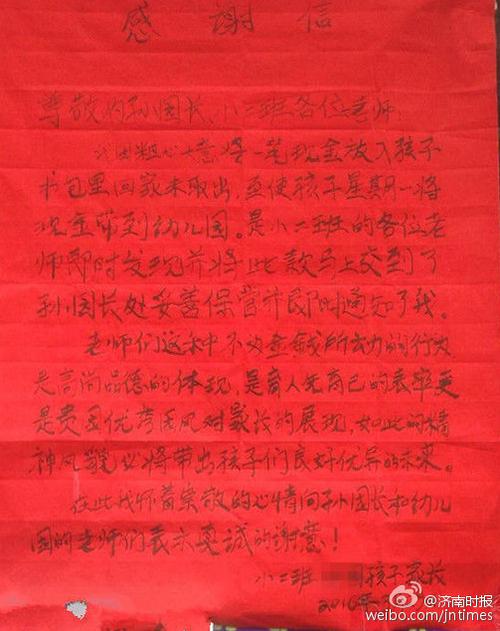 感谢信
尊敬的孙园长、小二班各位老师:
我因粗心大意将一笔现金放入孩子
书包里回家未取出,至使孩子星期一将
现金带到幼儿园。是小二班的各位老
师即时发现并将此款马上交到了
孙园长处妥善保管并即时通知了我。
老师们这种不为金钱所动的行为
是高尚品德的体现,是育人先育己的表率更
是贵园优秀园风对最好的展现,如此的精
神风貌必将带出孩子们良好优异的未来。
在此我怀着崇敬的心情向孙园长和幼儿
园的老师们表示真诚的谢意!
小二班 孩子家长
2016年
@济南时报
weibo.com/jntimes